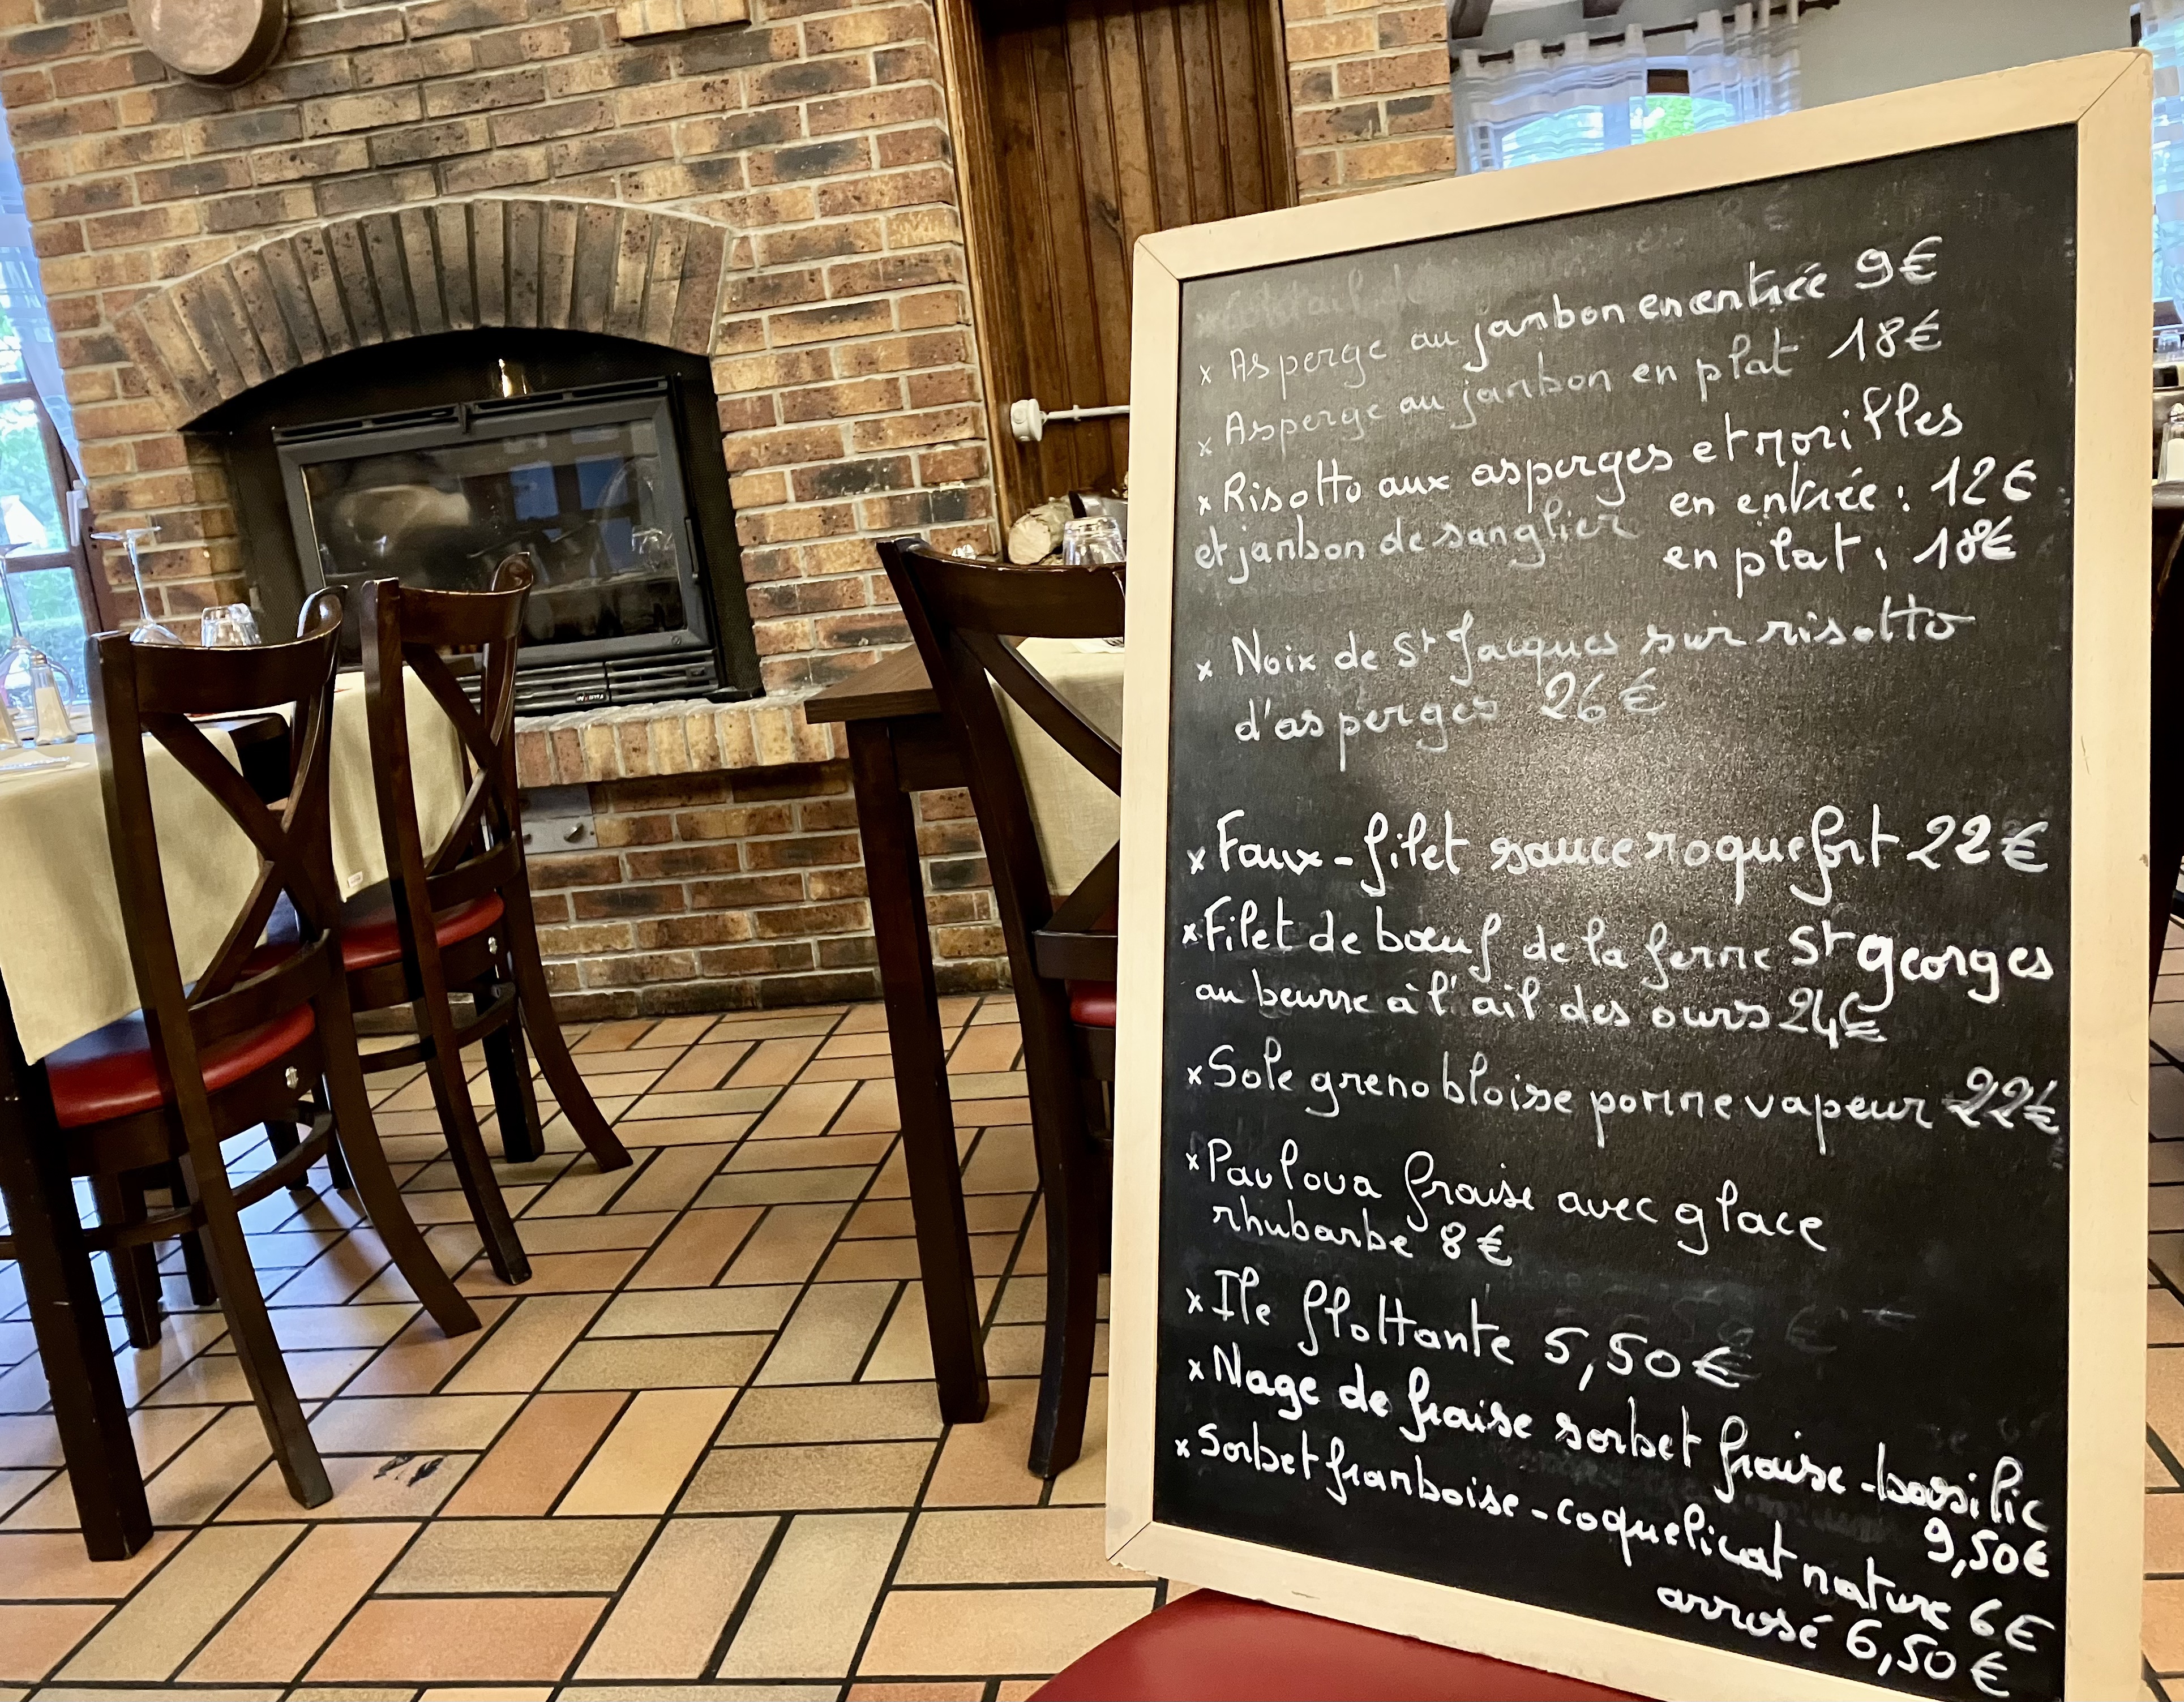 x Asperge au jambon en entrée 9€
x Asperge au jambon en plat 18€
x Risotto aux asperges et morilles
et jambon de sanglier en entrée : 12€
en plat : 18€
x Noix de St Jacques sur risotto
d'asperges 26€
x Faux-filet sauce roquefort 22€
x Filet de bœuf de la ferme St georges
au beurre à l'ail des ours 24€
x Sole grenobloise pomme vapeur 22€
x Pavlova fraise avec glace
rhubarbe 8€
x Ile flottante 5,50€
x Nage de fraise sorbet fraise-basilic
9,50€
x Sorbet framboise-coquelicat nature 6€
arrosé 6,50€